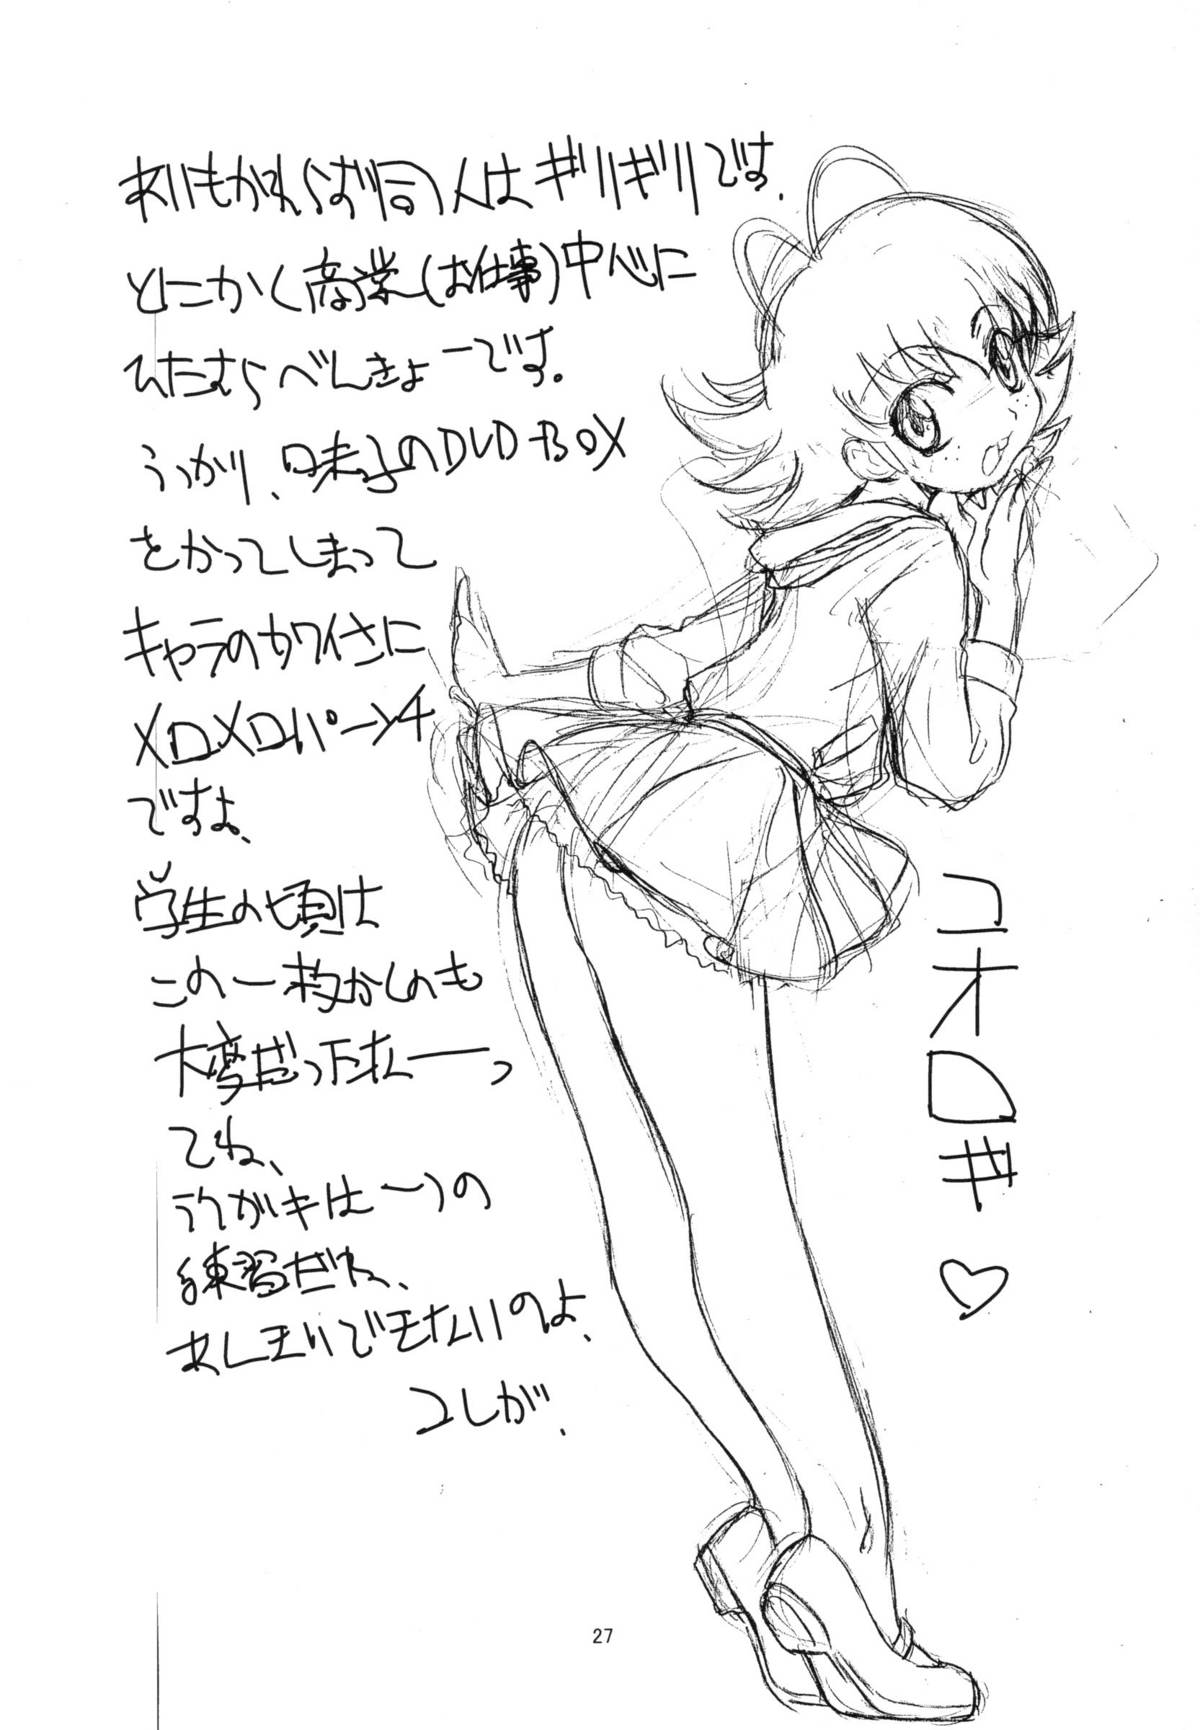 あいもかわらず同人はギリギリです、
とにかく商業(お仕事)中心に
ひたすらべんきょーです。
うっかり、味っ子のDVD-BOX
をかってしまって
キャラのカワイさに
メロメロパーンチ
ですよ、
学生の頃は
この一枚かくのも
大変だったなーっ
てね、
ラクガキは一つの
練習だね、
あんまりできないのよ、
コレが、
コオロギ
♡
27